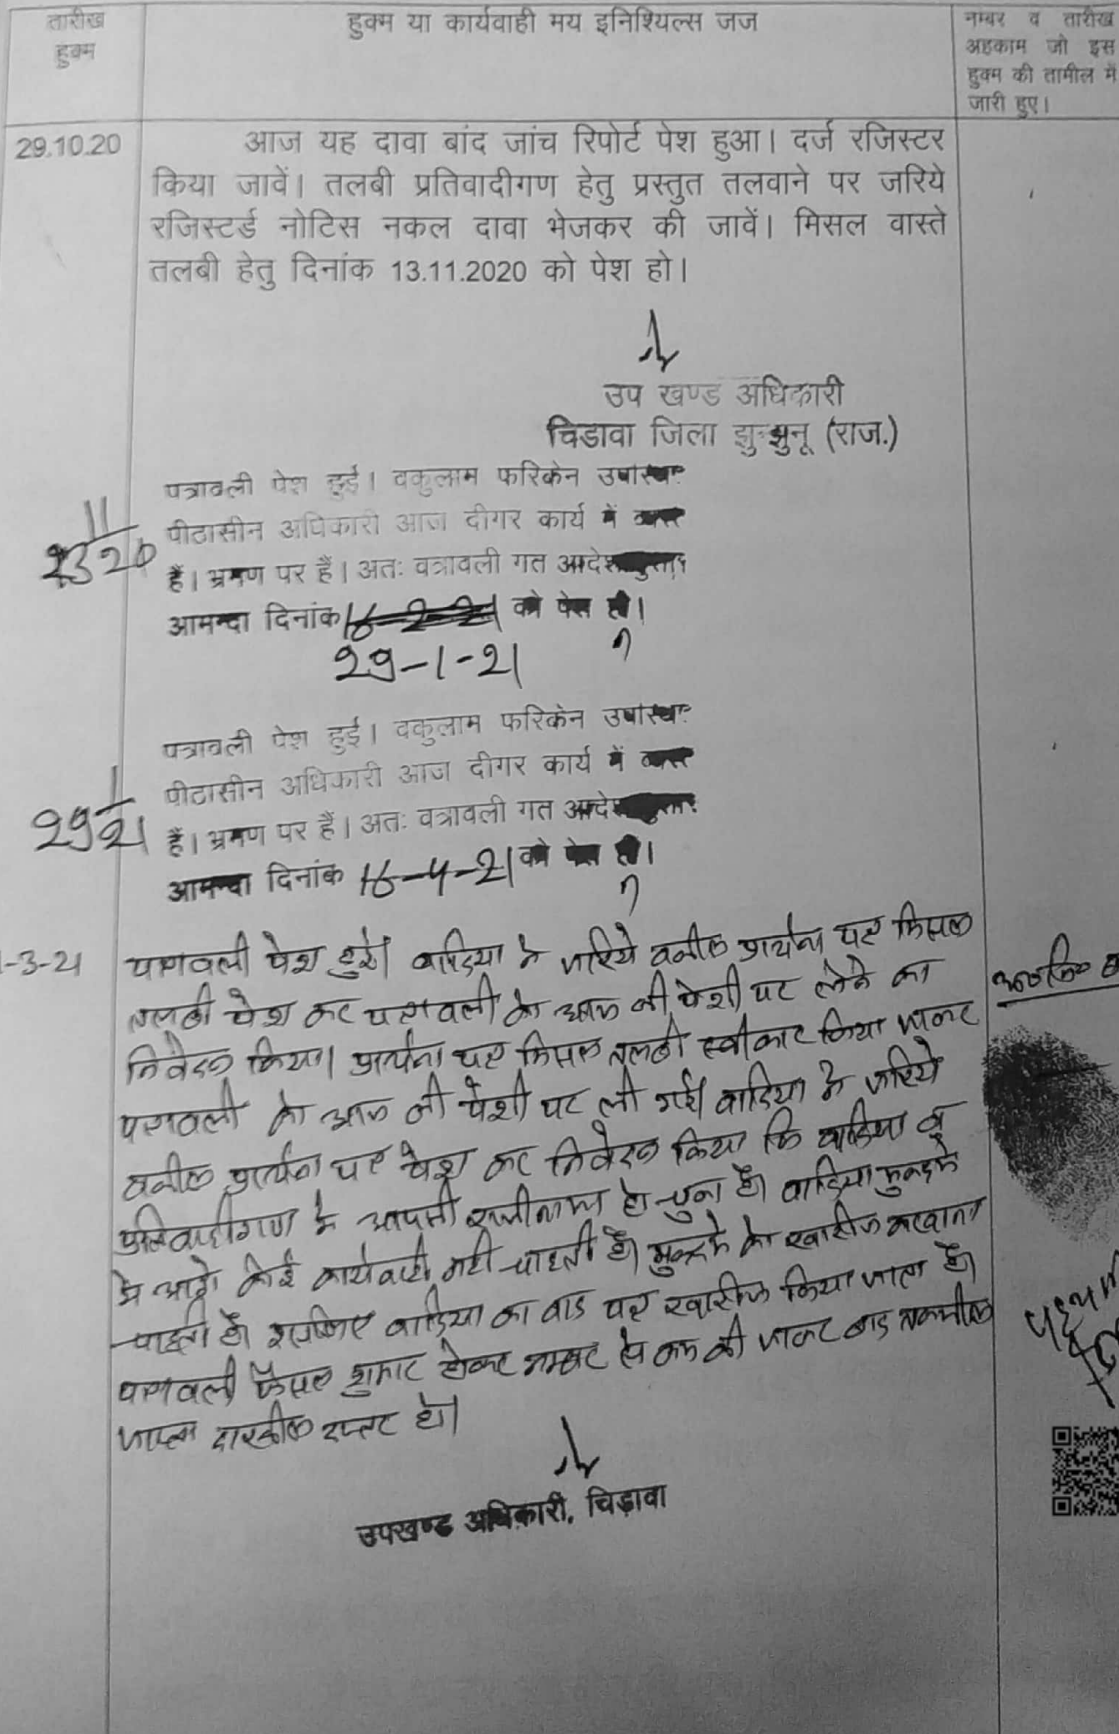 तारीख
हुक्म
हुक्म या कार्यवाही मय इनिश्यिल्स जज
नम्बर व तारीख
अहकाम जो इस
हुक्म की तामील में
जारी हुए।
29.10.20
आज यह दावा बांद जांच रिपोर्ट पेश हुआ। दर्ज रजिस्टर
किया जावें। तलबी प्रतिवादीगण हेतु प्रस्तुत तलवाने पर जरिये
रजिस्टर्ड नोटिस नकल दावा भेजकर की जावें। मिसल वास्ते
तलबी हेतु दिनांक 13.11.2020 को पेश हो।
उप खण्ड अधिकारी
चिडावा जिला झुन्झुनू (राज.)
पत्रावली पेश हुई। वकुलाम फरिकेन
पीटासीन अधिकारी आज दीगर कार्य में
हैं। भ्रमण पर हैं। अतः वत्रावली गत
आमन्दा दिनांक को पेस हो।
29-1-21
पत्रावली पेश हुई। वकुलाम फरिकेन
पीटासीन अधिकारी आज दीगर कार्य में
29 1/21
हैं। भ्रमण पर हैं। अतः वत्रावली गत
आमन्दा दिनांक 16-4-21 को पेस हो।
-3-21
पत्रावली पेश हुई। वादिया ने जरिये वकील प्रार्थना पत्र मिसल
तलबी पेश कर पत्रावली को आज की पेशी पर लेने का
निवेदन किया। प्रार्थना पत्र मिसल तलबी स्वीकार किया जाकर
पत्रावली को आज की पेशी पर ली गई। वादिया ने जरिये
वकील प्रार्थना पत्र पेश कर निवेदन किया कि वादिया व
प्रतिवादीगण के आपसी राजीनामा हो चुका है। वादिया मुकदमे
मे आगे कोई कार्यवाही नही चाहती है। मुकदमे को खारीज करवाना
चाहती है। इसलिए वादिया का वाद पत्र खारीज किया जाता है।
पत्रावली फैसल शुमार होकर नम्बर से कम की जाकर बाद तकमील
जाप्ता दाखील दफ्तर हो।
उपखण्ड अधिकारी, चिड़ावा